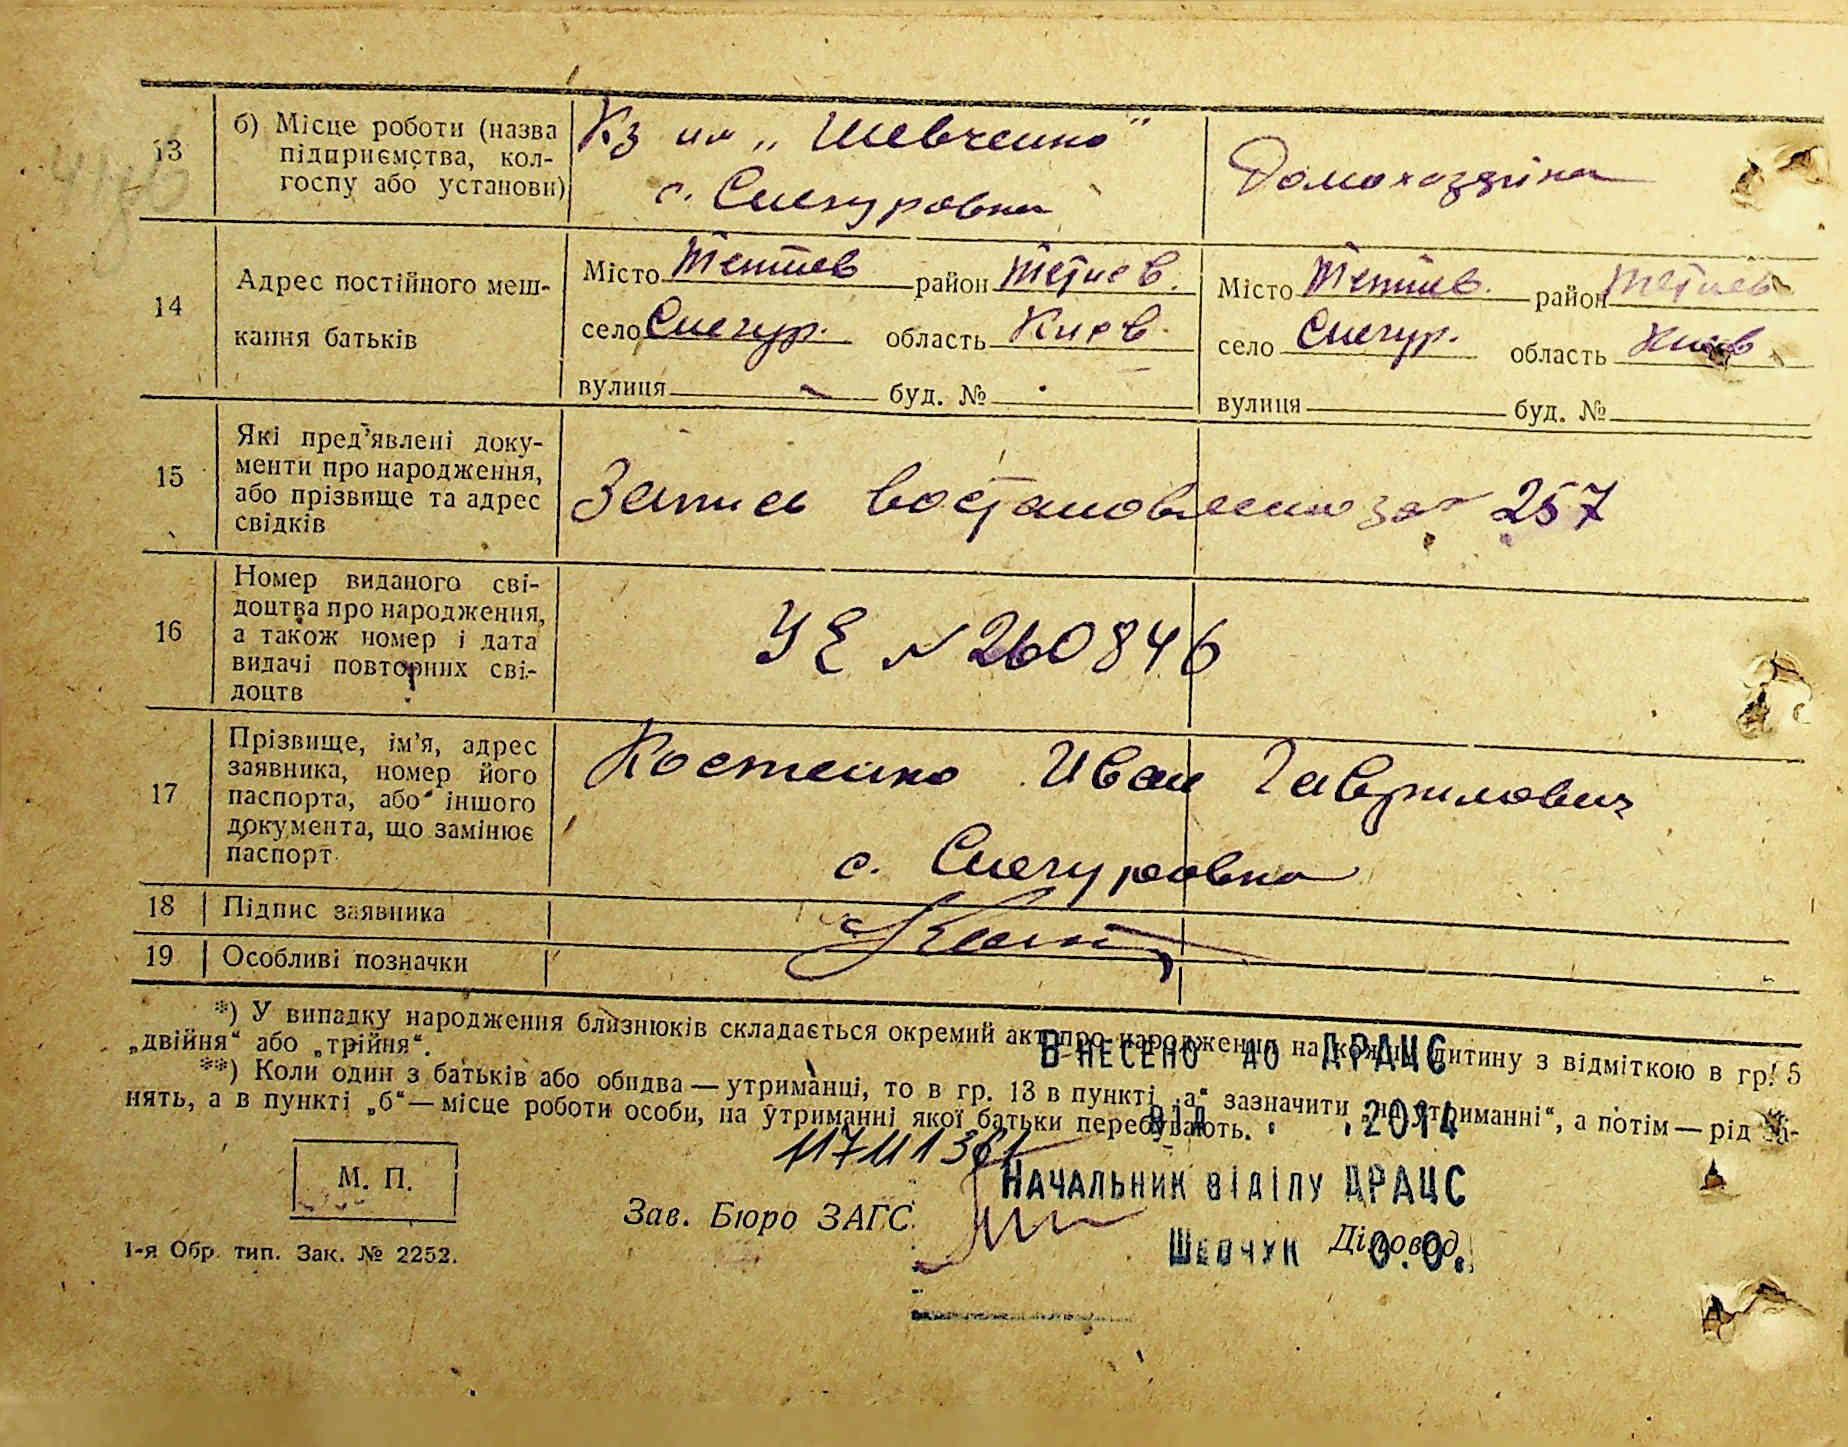 13
б) Місце роботи (назва
підприємства, кол-
госпу або установи)
Кз им „Шевченко"
с. Снегуровка
Домохозяйка
14
Адрес постійного меш-
кання батьків
Місто Тетиев район Тетиев.
село Снегур. область Киев.
вулиця буд. №
Місто Тетиев. район Тетиев
село Снегур. область Киев
вулиця буд. №
15
Які пред'явлені доку-
менти про народження,
або прізвище та адрес
свідків
Запись востановленна за 257
16
Номер виданого сві-
доцтва про народження,
а також номер і дата
видачі повторних сві-
доцтв
УЕ N 260846
17
Прізвище, ім'я, адрес
заявника, номер його
паспорта, або іншого
документа, що замінює
паспорт
Костенко Иван Гаврилович
с. Снегуровка
18 Підпис заявника
19 Особливі позначки
*) У випадку народження близнюків складається окремий акт про народження на кожну дитину з відміткою в гр. 5
„двійня" або „трійня".
**) Коли один з батьків або обидва — утриманці, то в гр. 13 в пункті „а" зазначити „на утриманні", а потім — рід за-
нять, а в пункті „б" — місце роботи особи, на утриманні якої батьки перебувають.
ВНЕСЕНО ДО ДРАЦС
ВІД . .2014
НАЧАЛЬНИК ВІДІЛУ ДРАЦС
ШЕВЧУК О.О.
М. П.
Зав. Бюро ЗАГС
Діловод
1-я Обр. тип. Зак. № 2252.